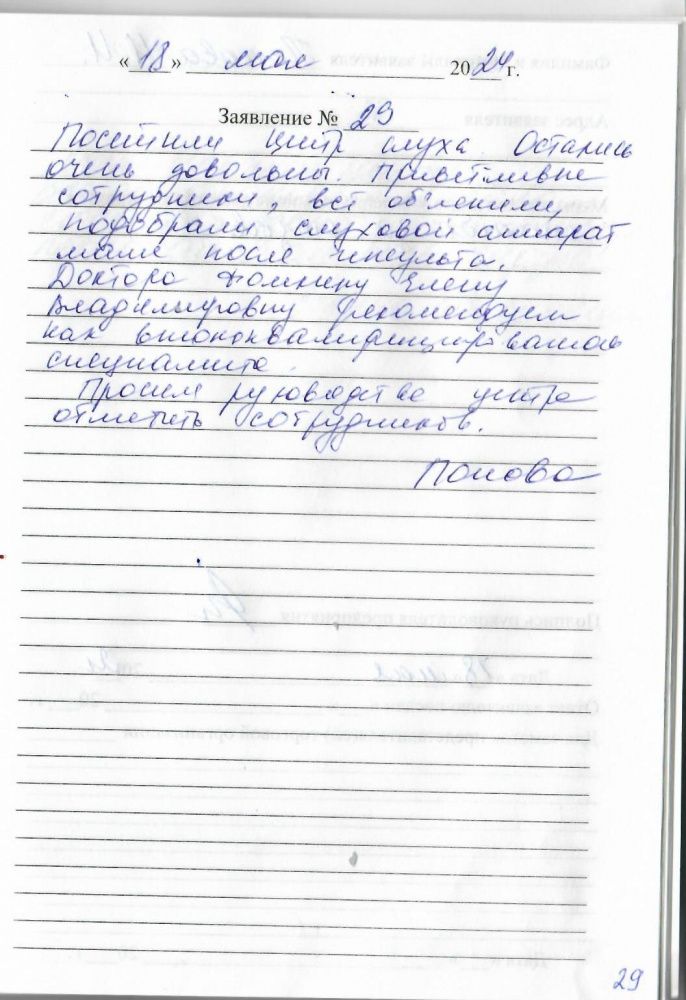 «18» мая 2024 г.
Заявление № 29
Посетили центр слуха. Остались
очень довольны. Приветливые
сотрудники, всё объяснили,
подобрали слуховой аппарат
маме после инсульта.
Доктора Елену
Владимировну рекомендуем
как высококвалифицированного
специалиста.
Просим руководство центра
отметить сотрудников.
Попова
29